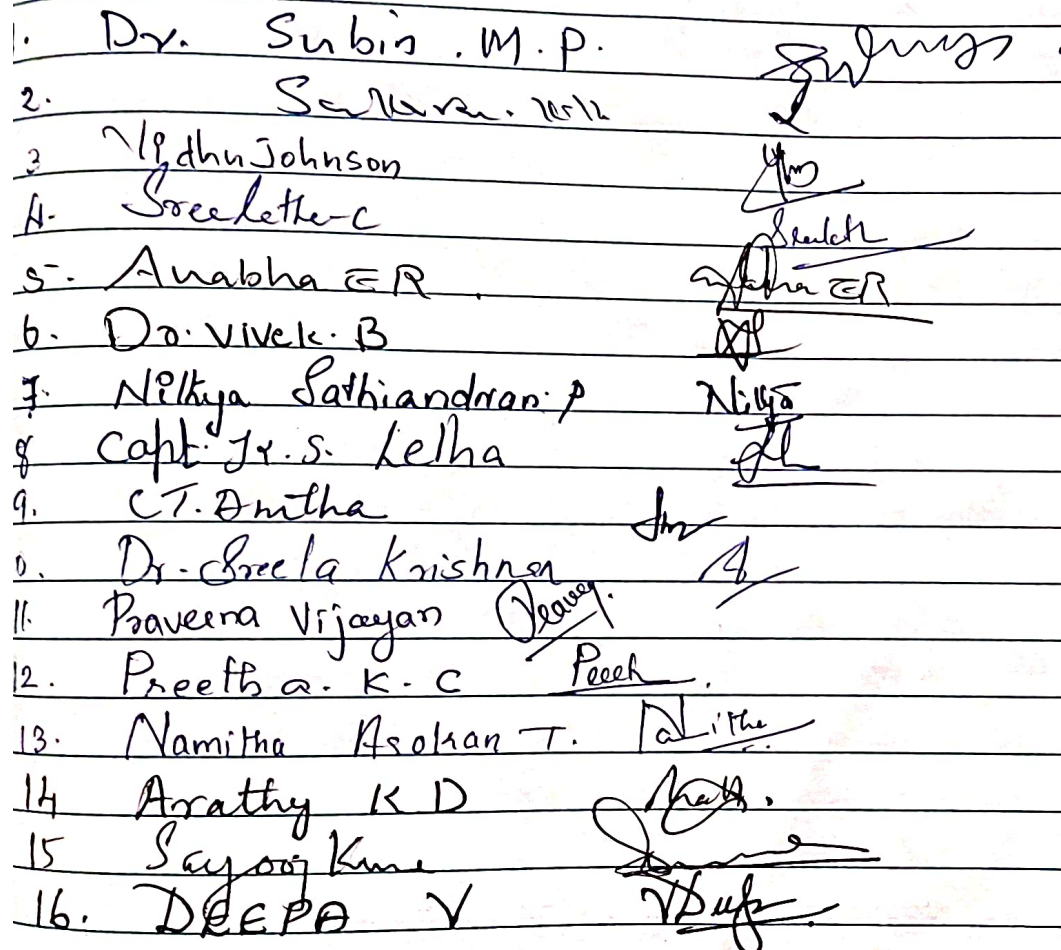 1. Dr. Subin . M . P.
2.
3 Vidhu Johnson
4. Sreeletha-C Sreelath
5. Anabha ER . Anabha ER
6. Dr. Vivek. B
7. Nithya Sathiandran. P Nithya
8 Capt. Dr. S. Letha
9. C T. Anitha
0. Dr. Sreela Krishnan
11. Praveena Vijayan Praveen.
12. Preetha. K. C Preeth
13. Namitha Asokan T.
14 Arathy K D Arath.
15 Sayooj
16. DEEPA V VDeepa